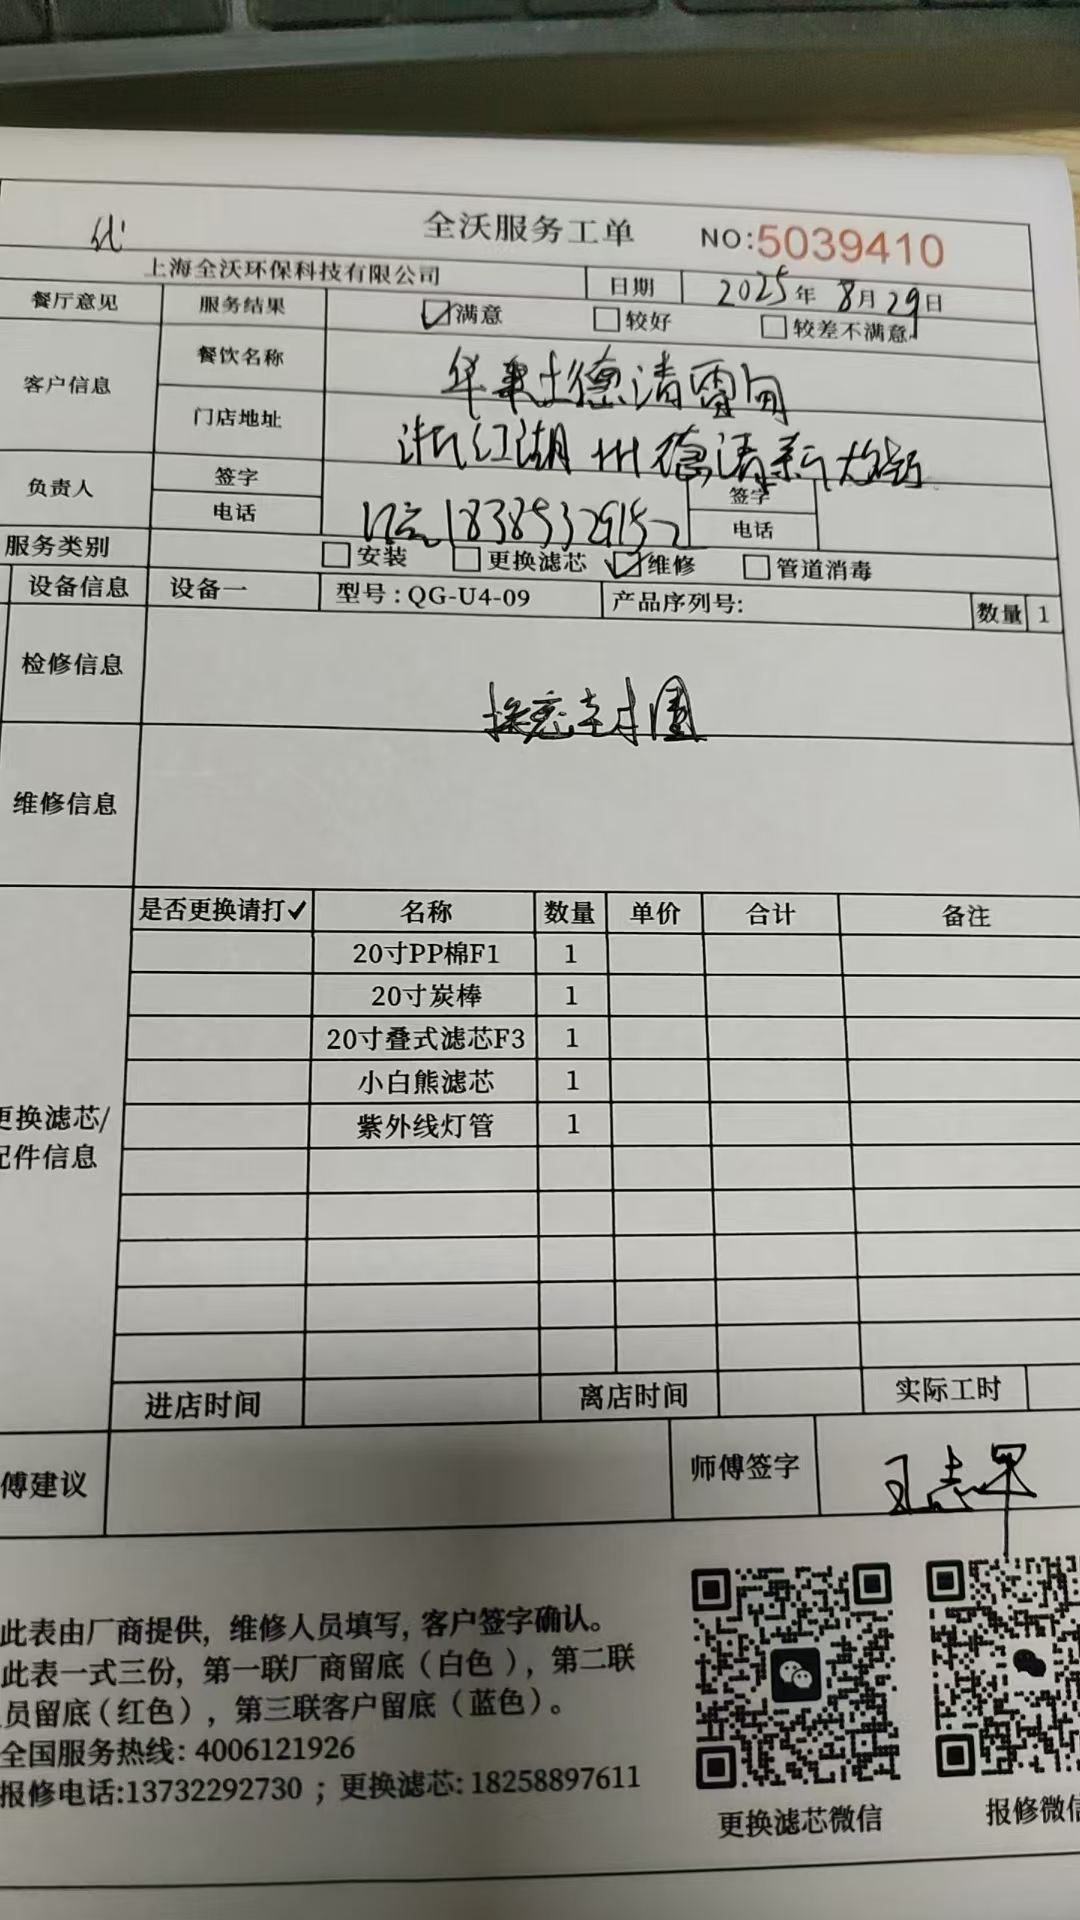 全沃服务工单 NO:5039410
上海全沃环保科技有限公司 日期 2025年 8月29日
餐厅意见 服务结果 满意 较好 较差不满意
客户信息 餐饮名称 华莱士德清雷甸
门店地址 浙江湖州德清
负责人 签字 签字
电话 18385329152 电话
服务类别 安装 更换滤芯 维修 管道消毒
设备信息 设备一 型号:QG-U4-09 产品序列号: 数量 1
检修信息
维修信息
是否更换请打✓ 名称 数量 单价 合计 备注
20寸PP棉F1 1
20寸炭棒 1
20寸叠式滤芯F3 1
小白熊滤芯 1
紫外线灯管 1
更换滤芯/
配件信息
进店时间 离店时间 实际工时
傅建议 师傅签字 王志军
此表由厂商提供, 维修人员填写, 客户签字确认。
此表一式三份, 第一联厂商留底（白色）, 第二联
员留底（红色）, 第三联客户留底（蓝色）。
全国服务热线: 4006121926
报修电话:13732292730 ; 更换滤芯: 18258897611
更换滤芯微信 报修微信